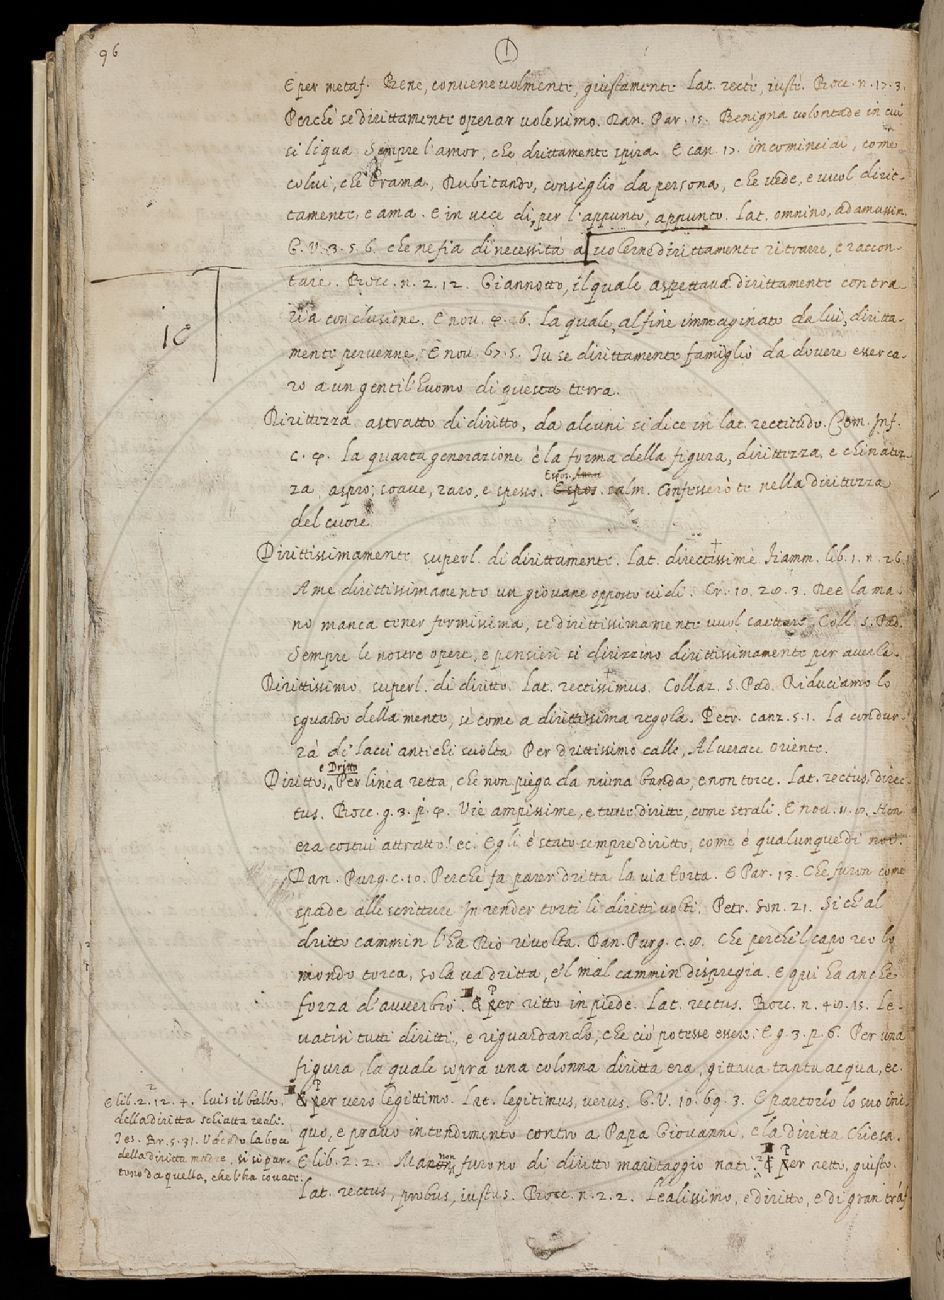 96
1
E per metaf. Bene, convenevolmente, giustamente. Lat. rectè, iustè. Bocc. n. 17. 3.
Perchè se dirittamente operar volessimo. Dan. Par. 15. Benigna volontade in cui
si liqua Sempre l'amor, che drittamente spira. E can. 17. incominciai, come
colui, che brama, Dubitando, consiglio da persona, che vede, e vuol dirit-
tamente, e ama. E in vece di, per l'appunto, appunto. Lat. omnino, ad amussim.
G. V. 3. 5. 6. che ne fia di necessità a volerne dirittamente ritrarre, e raccon-
tare. Bocc. n. 2. 12. Giannotto, il quale aspettava dirittamente contra
ria conclusione. E nov. 4. 26. La quale, al fine immaginato da lui, diritta-
mente pervenne. E nov. 67. 5. Tu se dirittamente famiglio da dovere esser ca-
ro a un gentil'huomo di questa terra.
10
Dirittezza astratto di diritto, da alcuni si dice in lat. rectitudo. Com. Inf.
c. 4. La quarta generazione è la forma della figura, dirittezza, e chinatez-
za, aspro, soave, raro, e spesso. Espos. salm. Confesserò te nella dirittezza
del cuore.
Dirittissimamente superl. di dirittamente. Lat. directissimè. Fiamm. lib. 1. n. 26.
A me dirittissimamente un giovane opposto vidi. Cr. 10. 28. 3. Dee la ma-
no manca tener fermissima, se dirittissimamente vuol saettare. Coll. S. Pad.
Sempre le nostre opere, e pensieri si dirizzino dirittissimamente per averle.
Dirittissimo superl. di diritto. Lat. rectissimus. Collaz. S. Pad. Riduciamo lo
sguardo della mente, sì come a dirittissima regola. Petr. canz. 5. 1. La condur-
rà de' lacci antichi sciolta Per drittissimo calle, Al verace oriente.
e Dritto
Diritto, Per linea retta, che non piega da niuna banda, e non torce. Lat. rectus, direc-
tus. Bocc. g. 3. p. 4. Vie ampissime, e tutte diritte, come strali. E nov. 11. 8. Non
era costui attratto? ec. Egli è stato sempre diritto, come è qualunque di noi.
Dan. Purg. c. 10. Perchè fa parer dritta la via torta. E Par. 13. Che furon come
spade alle scritture In render torti li diritti volti. Petr. Son. 21. Sì ch'al
dritto cammin l'ha Dio rivolta. Dan. Purg. c. 8. Che perchè 'l capo reo lo
mondo torca, Sola va dritta, e 'l mal cammin dispregia. E qui ha anche
forza d'avverbio. E per ritto in piede. Lat. rectus. Bocc. n. 48. 15. Le-
vatisi tutti diritti, e riguardando, che ciò potesse essere. E g. 3. p. 6. Per una
figura, la quale sopra una colonna diritta era, gittava tanta acqua, ec.
E per vero legittimo. Lat. legitimus, verus. G. V. 10. 69. 3. E partorìo lo suo ini-
quo, e pravo intendimento contro a Papa Giovanni, e la diritta Chiesa.
E lib. 2. 2. Ma non furono di diritto maritaggio nati. E per retto, giusto.
Lat. rectus, probus, iustus. Bocc. n. 2. 2. Lealissimo, e diritto, e di gran traf-
E lib. 2. 12. 4. Luis il balbo,
della diritta schiatta reale.
Tes. Br. 5. 31. Udendo la boce
della diritta madre, si si par-
tono da quella, che l'ha covate.